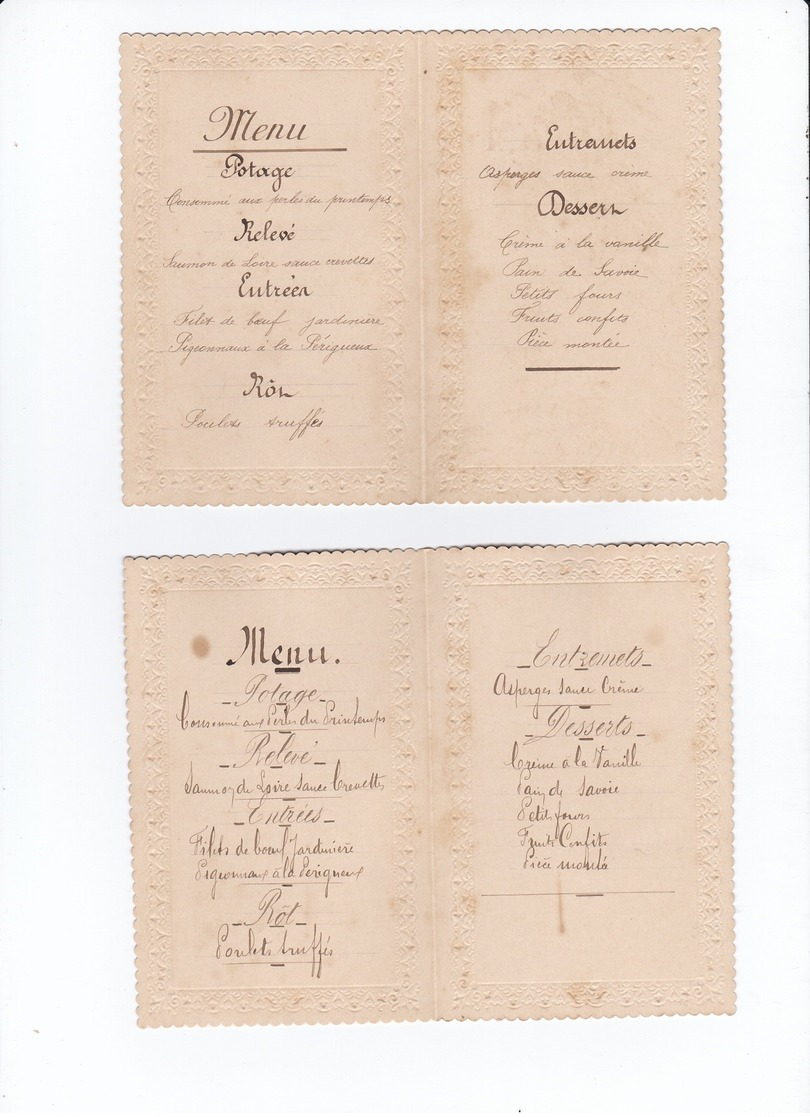 Menu
Potage
Consommé aux perles du printemps
Relevé
Saumon de Loire sauce crevettes
Entrées
Filet de bœuf jardinière
Pigeonnaux à la Périgueux
Rôt
Poulets truffés
Entremets
Asperges sauce crème
Dessert
Crème à la vanille
Pain de Savoie
Petits fours
Fruits confits
Pièce montée
Menu.
Potage
Consommé aux Perles du Printemps
Relevé
Saumon de Loire sauce Crevettes
Entrées
Filets de bœuf Jardinière
Pigeonnaux à la Périgueux
Rôt
Poulets truffés
Entremets
Asperges sauce Crème
Desserts
Crème à la Vanille
Pain de Savoie
Petits fours
Fruits Confits
Pièce monté